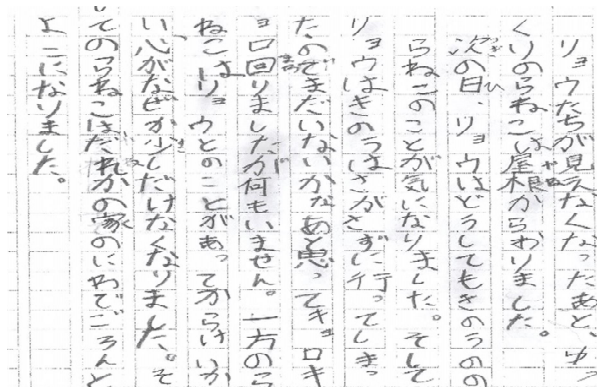 リョウたちが見えなくなったあと、ゆっ
くりのらねこは屋根からおりました。
次の日、リョウはどうしてもきのうのの
らねこのことが気になりました。そして
リョウはきのうはさがさずに行ってしまっ
たのでまだいないかなあと思ってキョロキ
ョロ回りましたが何もいません。一方のら
ねこはリョウとのことがあってからけいか
い心がなぜか少しだけなくなりました。そ
してのらねこはだれかの家のにわでごろんと
よこになりました。